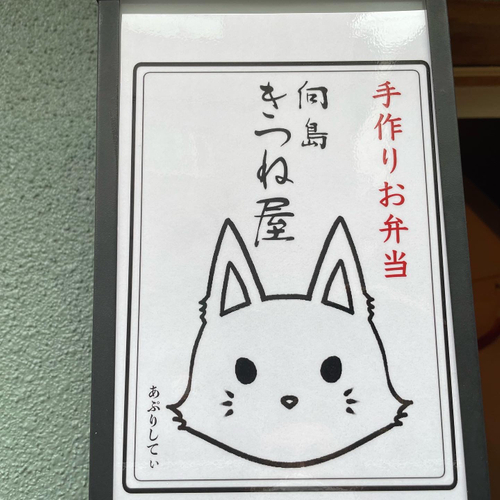 手作りお弁当
向島
きつね屋
あぷりしてぃ